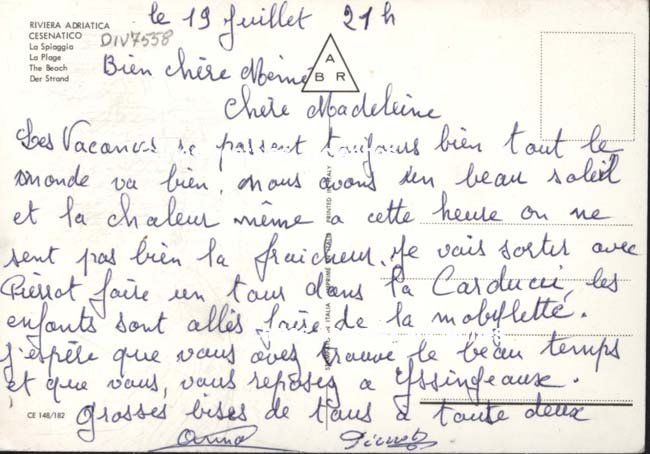 RIVIERA ADRIATICA
CESENATICO
La Spiaggia
La Plage
The Beach
Der Strand
DIV7558
le 19 Juillet 21h
Bien chère Mémé
Chère Madeleine
A
B R
Les Vacances se passent toujours bien tout le
monde va bien, nous avons un beau soleil
et la chaleur même a cette heure on ne
sent pas bien la fraicheur. Je vais sortir avec
Pierrot faire un tour dans la Carducci, les
enfants sont allés faire de la mobylette.
j'espère que vous aves trouve le beau temps
et que vous, vous reposez a Yssingeaux.
grosses bises de tous à toute deux
Anna Pierrot
PRINTED IN ITALY
CE 148/182